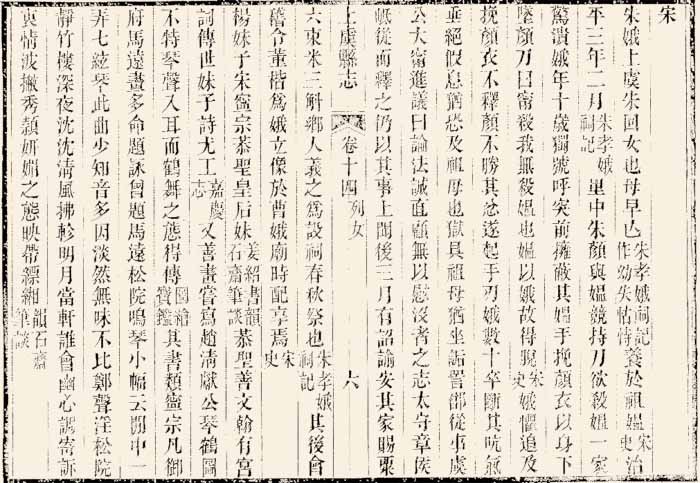 宋
朱娥上虞朱回女也母早亡朱孝娥祠記作幼失怙恃養於祖媼宋史治
平三年二月朱孝娥祠記里中朱顏與媼競持刀欲殺媼一家
驚潰娥年十歲獨號呼突前擁蔽其媼手挽顏衣以身下
墜顏刀曰甯殺我無殺媼也媼以娥故得脫宋史娥懼追及
挽顏衣不釋顏不勝其忿遂起手刃娥數十卒斷其吭氣
垂絕假息猶恐及祖母也獄具祖母猶坐詬詈部從事虞
公大甯進議曰論法誠直顧無以慰沒者之志太守章侯
岷從而釋之仍以其事上聞後三月有詔諭安其家賜粟
上虞縣志 卷十四 列女 六
六束米三斛鄉人義之為設祠春秋祭也朱孝娥祠記其後會
稽令董楷為娥立像於曹娥廟時配享焉宋史
楊妹子宋寧宗恭聖皇后妹姜紹書韻石齋筆談恭聖善文翰有宮
詞傳世妹子詩尤工嘉慶志又善畫嘗寫趙清獻公琴鶴圖
不特琴聲入耳而鶴舞之態得傳圖繪寶鑑其書類寧宗凡御
府馬遠畫多命題詠曾題馬遠松院鳴琴小幅云閒中一
弄七絃琴此曲少知音多因淡然無味不比鄭聲淫松院
靜竹樓深夜沈沈清風拂軫明月當軒誰會幽心調寄訴
衷情波撇秀穎妍媚之態映帶縹緗韻石齋筆談